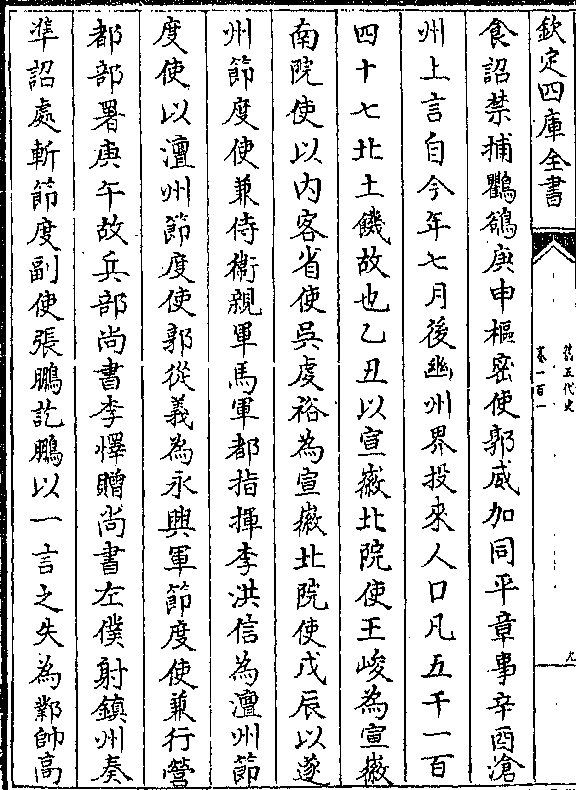 欽定四庫全書
舊五代史
卷一百一
九
食詔禁捕鸜鵒庚申樞密使郭威加同平章事辛酉滄
州上言自今年七月後幽州界投來人口凡五千一百
四十七北土饑故也乙丑以宣徽北院使王峻為宣徽
南院使以内客省使吳虔裕為宣徽北院使戊辰以遂
州節度使兼侍衛親軍馬軍都指揮李洪信為澶州節
度使以澶州節度使郭從義為永興軍節度使兼行營
都部署庚午故兵部尚書李懌贈尚書左僕射鎮州奏
準詔處斬節度副使張鵬訖鵬以一言之失為鄴帥高